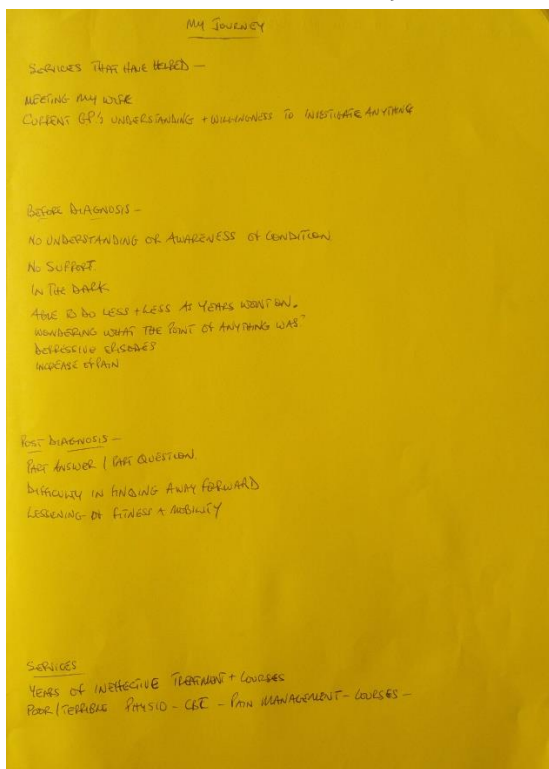 MY JOURNEY
SERVICES THAT HAVE HELPED -
MEETING MY WIFE
CURRENT GP'S UNDERSTANDING + WILLINGNESS TO INVESTIGATE ANYTHING
BEFORE DIAGNOSIS -
NO UNDERSTANDING OR AWARENESS OF CONDITION
NO SUPPORT.
IN THE DARK
ABLE TO DO LESS + LESS AS YEARS WENT ON.
WONDERING WHAT THE POINT OF ANYTHING WAS.
DEPRESSIVE EPISODES
INCREASE OF PAIN
POST DIAGNOSIS -
PART ANSWER / PART QUESTION.
DIFFICULTY IN FINDING A WAY FORWARD
LESSENING OF FITNESS + MOBILITY
SERVICES
YEARS OF INEFFECTIVE TREATMENT + COURSES
POOR / TERRIBLE PHYSIO - CBT - PAIN MANAGEMENT - COURSES -